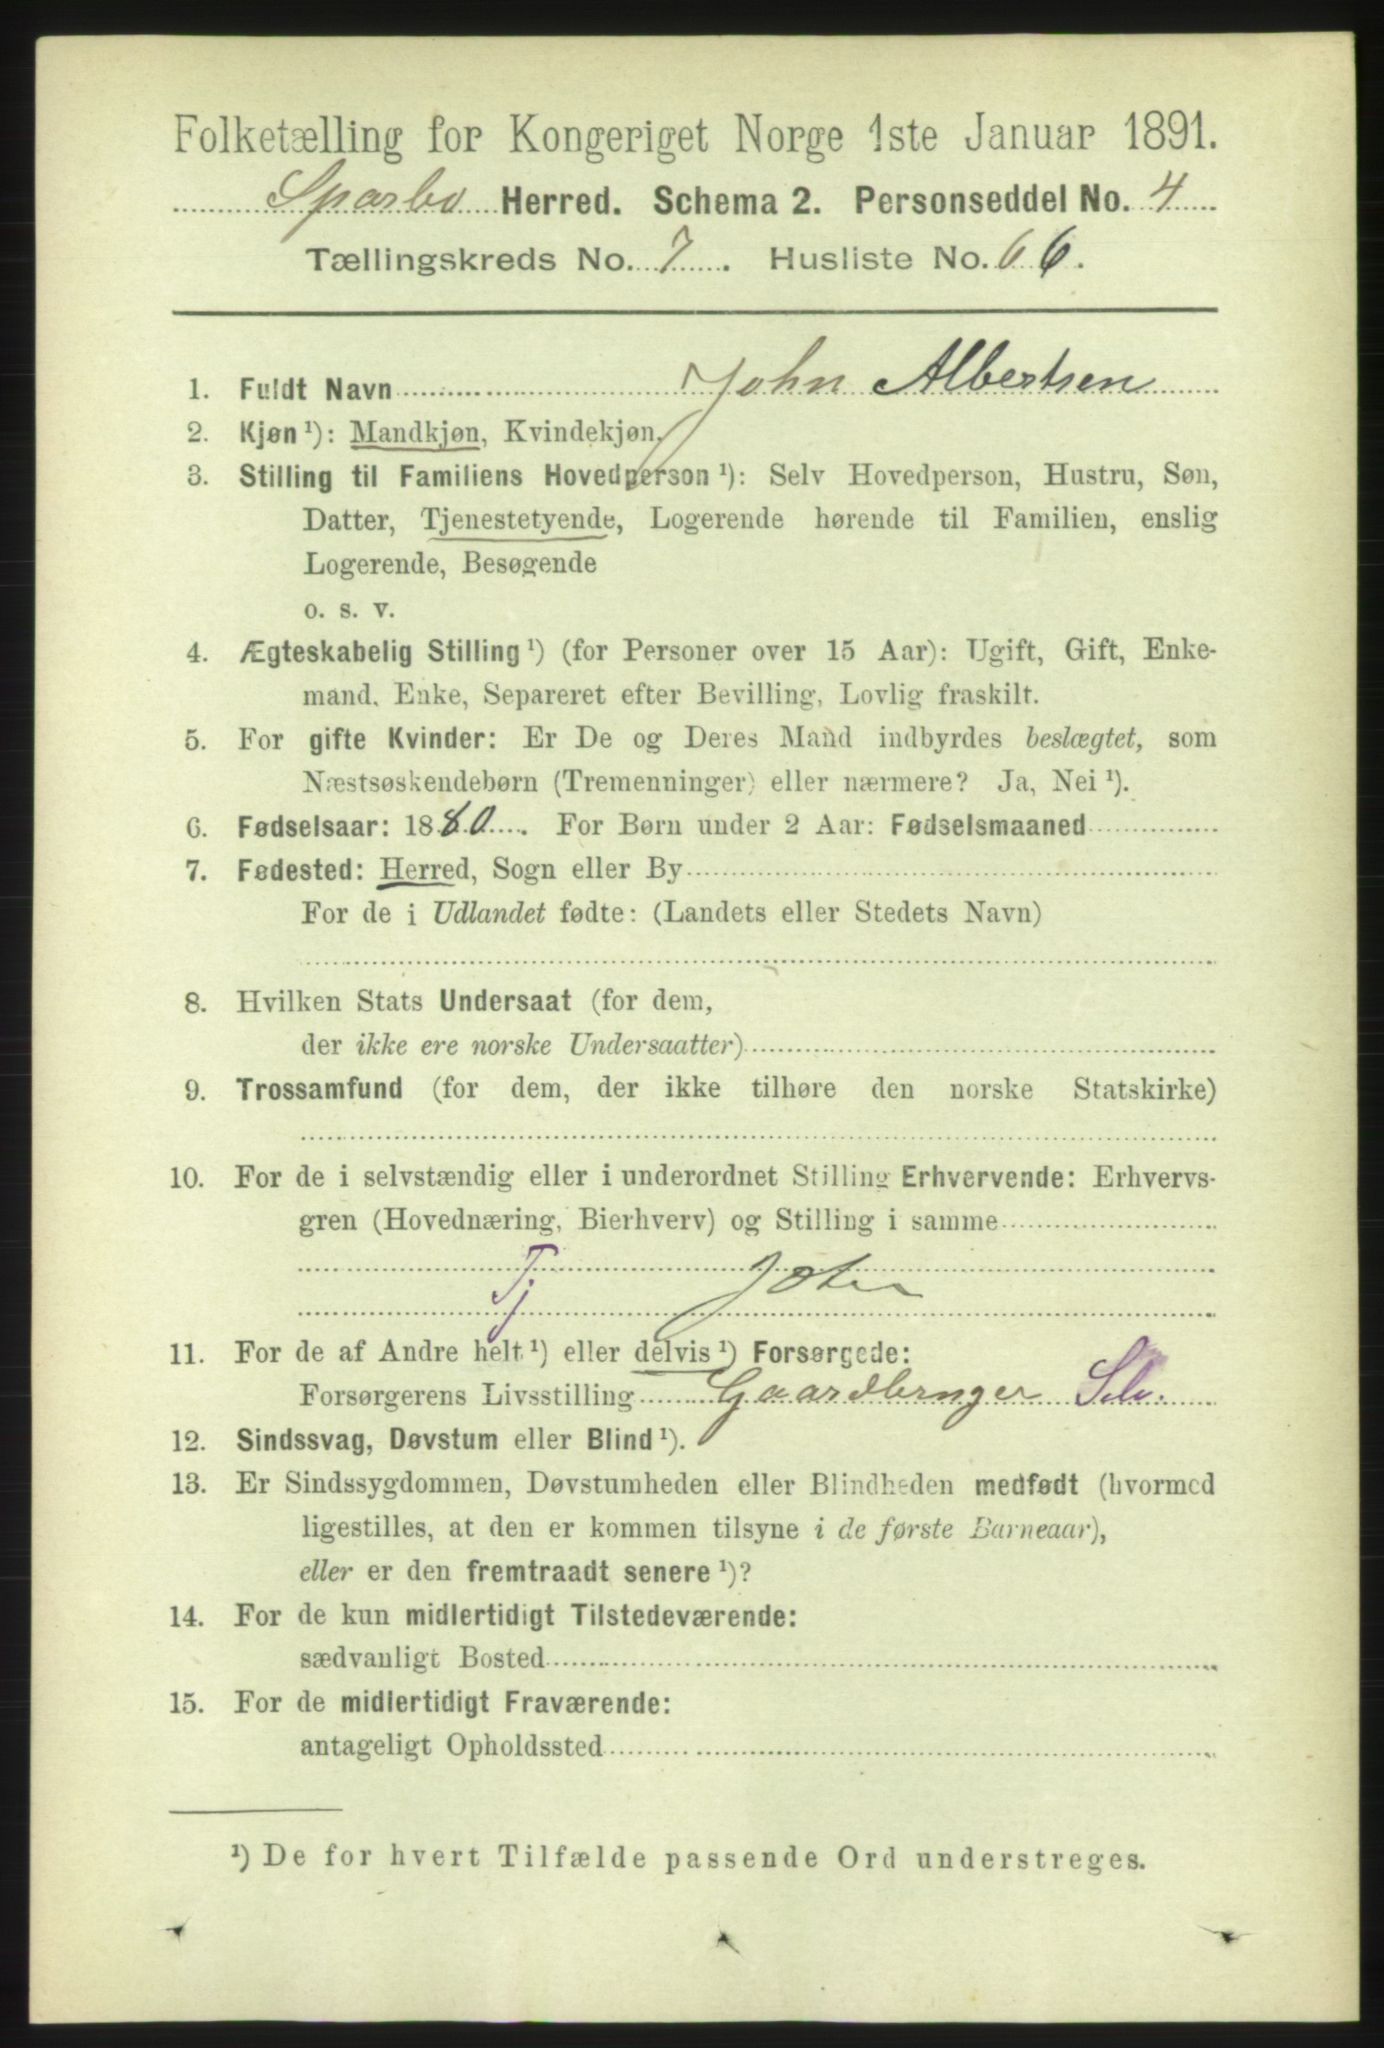 Folketælling for Kongeriget Norge 1ste Januar 1891.
Sparbo Herred. Schema 2. Personseddel No. 4
Tællingskreds No. 7. Husliste No. 66.
1. Fuldt Navn John Albertsen
2. Kjøn ¹): Mandkjøn, Kvindekjøn.
3. Stilling til Familiens Hovedperson ¹): Selv Hovedperson, Hustru, Søn,
Datter, Tjenestetyende, Logerende hørende til Familien, enslig
Logerende, Besøgende
o. s. v.
4. Ægteskabelig Stilling ¹) (for Personer over 15 Aar): Ugift, Gift, Enke-
mand, Enke, Separeret efter Bevilling, Lovlig fraskilt.
5. For gifte Kvinder: Er De og Deres Mand indbyrdes beslægtet, som
Næstsøskendebørn (Tremenninger) eller nærmere? Ja, Nei ¹).
6. Fødselsaar: 1880. For Børn under 2 Aar: Fødselsmaaned
7. Fødested: Herred, Sogn eller By
For de i Udlandet fødte: (Landets eller Stedets Navn)
8. Hvilken Stats Undersaat (for dem,
der ikke ere norske Undersaatter)
9. Trossamfund (for dem, der ikke tilhøre den norske Statskirke)
10. For de i selvstændig eller i underordnet Stilling Erhvervende: Erhvervs-
gren (Hovednæring, Bierhverv) og Stilling i samme
Tj Jæter
11. For de af Andre helt ¹) eller delvis ¹) Forsørgede:
Forsørgerens Livsstilling Gaardbruger Selv.
12. Sindssvag, Døvstum eller Blind ¹).
13. Er Sindssygdommen, Døvstumheden eller Blindheden medfødt (hvormed
ligestilles, at den er kommen tilsyne i de første Barneaar),
eller er den fremtraadt senere ¹)?
14. For de kun midlertidigt Tilstedeværende:
sædvanligt Bosted
15. For de midlertidigt Fraværende:
antageligt Opholdssted
¹) De for hvert Tilfælde passende Ord understreges.